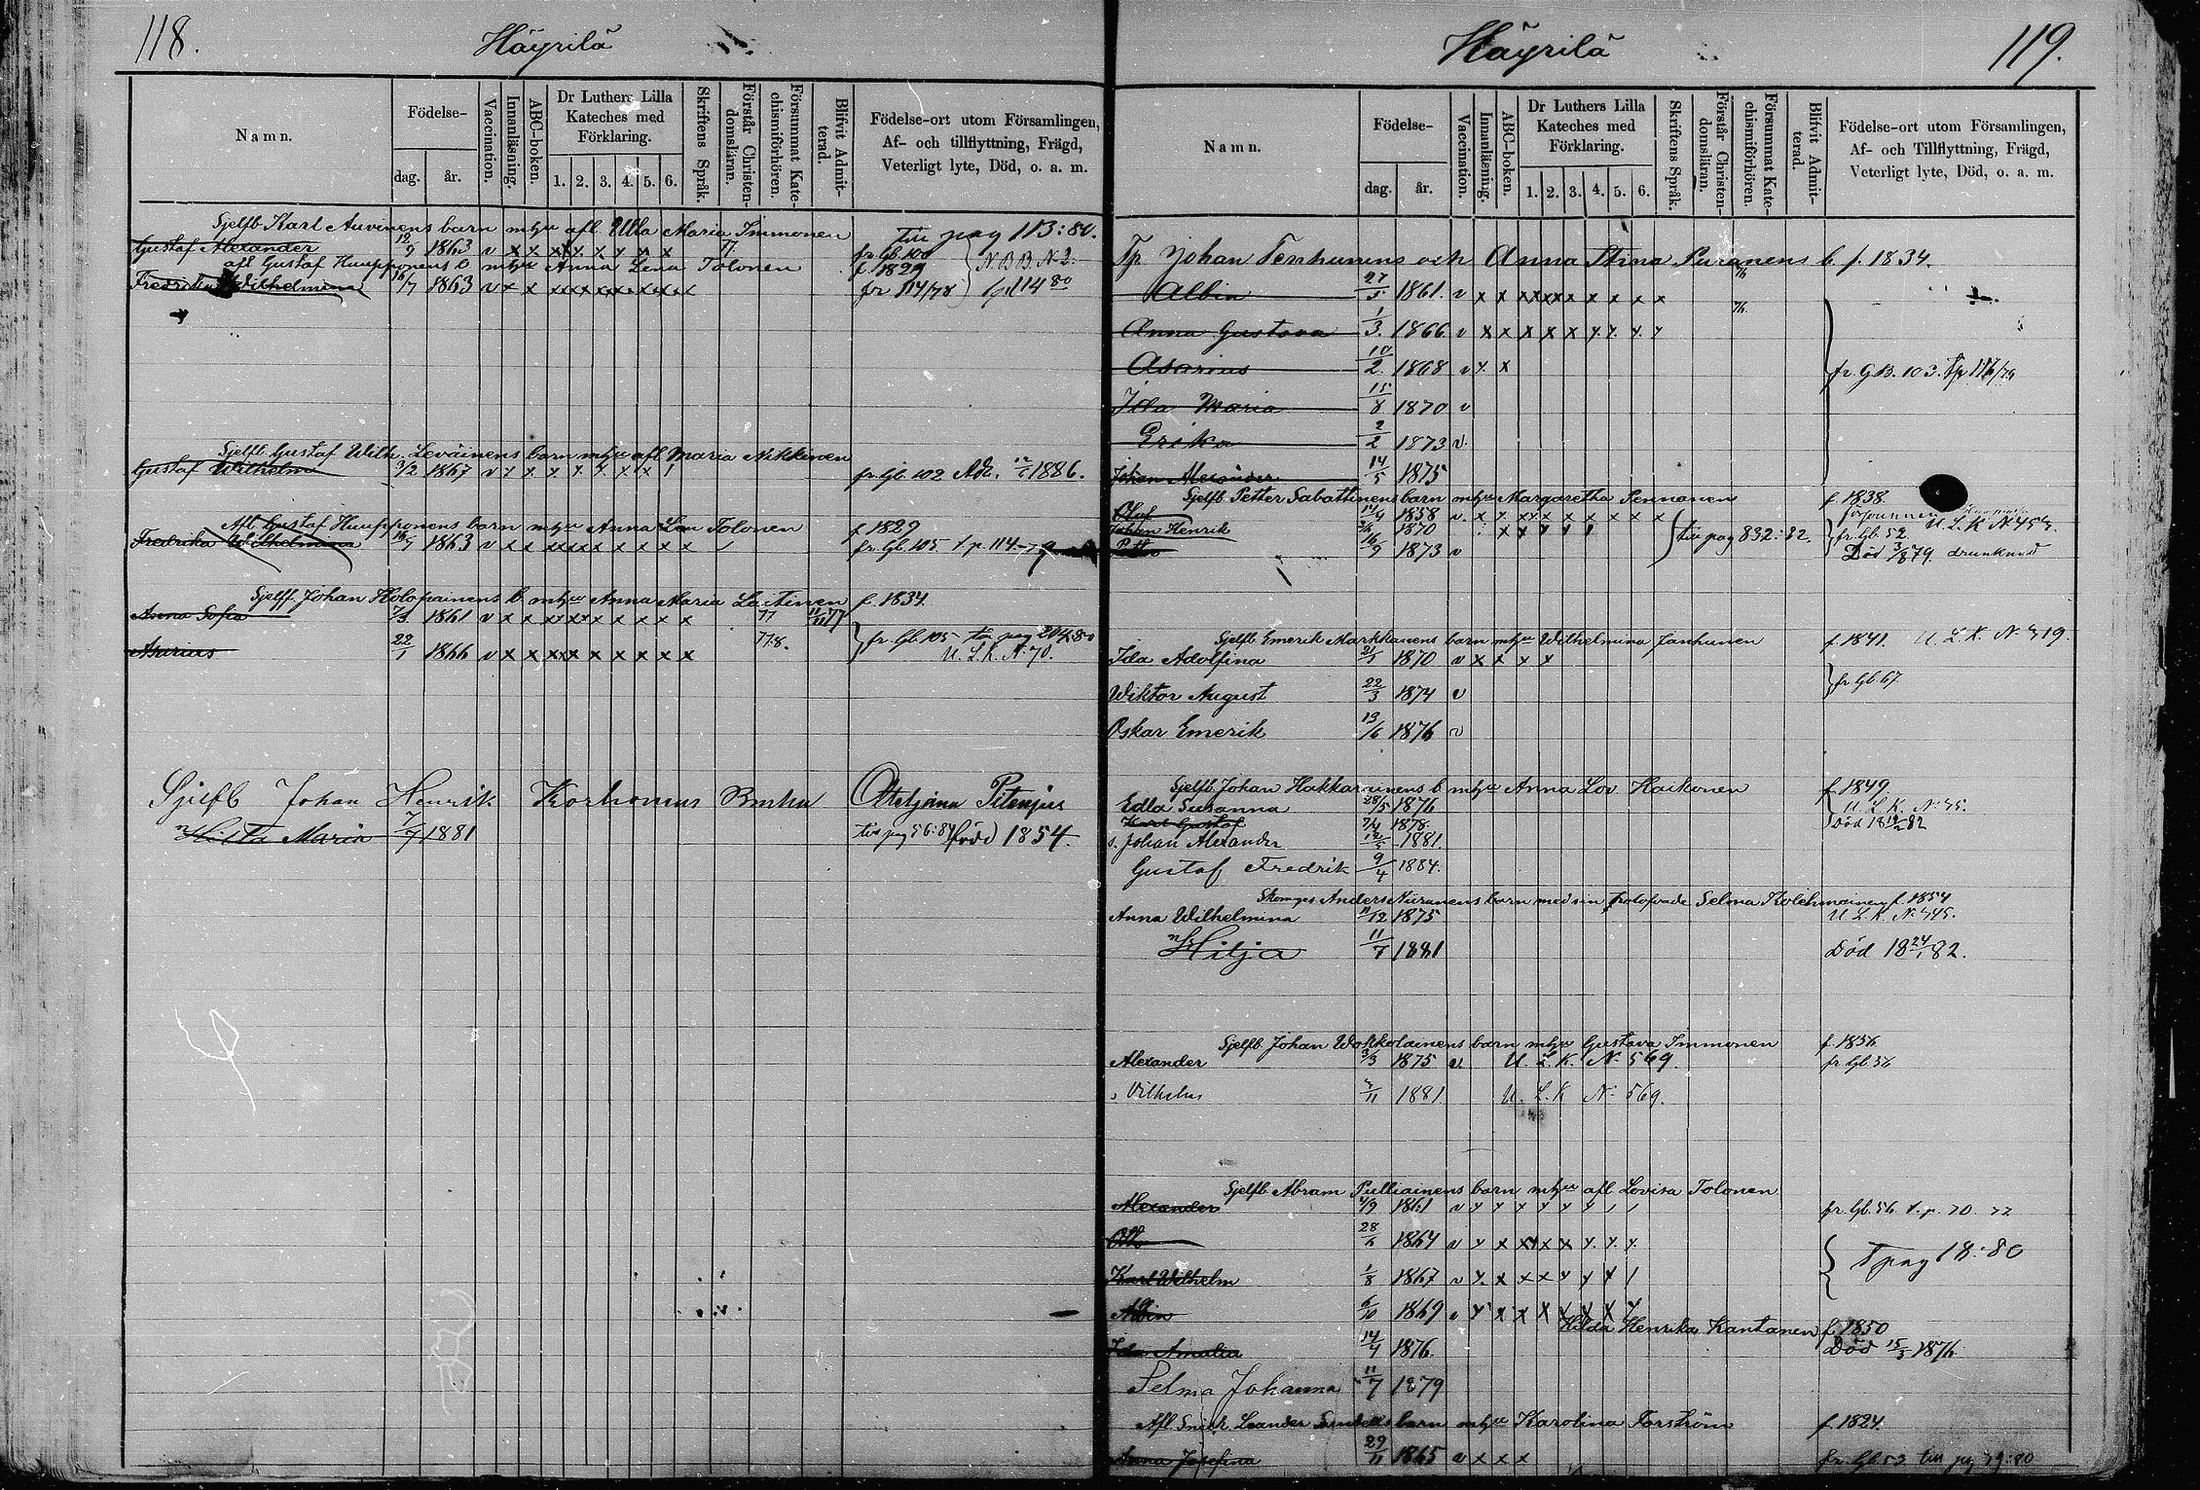 118.
Häyrilä
Namn.
Födelse-
dag.
år.
Vaccination.
Innanläsning.
ABC-boken.
Dr Luthers Lilla
Kateches med
Förklaring.
1. 2. 3. 4. 5. 6.
Skriftens Språk.
Förstår Christen-
domsläran.
Försummat Kate-
chismiförhören.
Blifvit Admit-
terad.
Födelse-ort utom Församlingen,
Af- och tillflyttning, Frägd,
Veterligt lyte, Död, o. a. m.
Sjelfb Karl Auvinens barn mhu afl. Ulla Maria Immonen till pag 113:80.
Gustaf Alexander 12/9 1863 v x x x x x x x x x fr. Gb. 100
afl Gustaf Huupponens b mhu Anna Lena Tolonen f. 1829 N.B.B. N 2
Fredrika Wilhelmina 16/7 1863 v x x x x x x x x x fr 114/78
Sjelfb. Gustaf Wilh. Leväinens barn mhu afl Maria Nikkinen
Gustaf Wilhelm 3/2 1867 v x x x x x x x 1 fr. Gb. 102 Adm. 1886.
Afl. Gustaf Huupponens barn mhu Anna Lena Tolonen f. 1829
Fredrika Wilhelmina 16/7 1863 v x x x x x x x x fr. Gb. 105. t. p. 114-79
Sjelfb Johan Holopainens b. mhu Anna Maria Laitinen f. 1834
Anna Sofia 7/3 1861 v x x x x x x x x x 77
Asarius 22/1 1866 v x x x x x x x x x 77.8. fr. Gb. 105 till pag 204:80
U. L. K. N. 70.
Sjelfb Johan Henrik Korhonens Otteljana Pitenjus
Hilta Maria 7/7 1881 till pag 56:84 född 1854.
Häyrilä
119.
Namn.
Födelse-
dag.
år.
Vaccination.
Innanläsning.
ABC-boken.
Dr Luthers Lilla
Kateches med
Förklaring.
1. 2. 3. 4. 5. 6.
Skriftens Språk.
Förstår Christen-
domsläran.
Försummat Kate-
chismiförhören.
Blifvit Admit-
terad.
Födelse-ort utom Församlingen,
Af- och Tillflyttning, Frägd,
Veterligt lyte, Död, o. a. m.
Tp. Johan Tenhunens och Anna Stina Puranens b. f. 1834.
Albin 27/5 1861. v x x x x x x x x x x
Anna Gustava 1/3. 1866. v x x x x x x x x x
Asarius 10/2 1868 v x x fr. G.B. 103. Tp 116/79
Ida Maria 15/8 1870 v
Erika 2/2 1873 v.
Johan Alexander 14/5 1875
Sjelfb. Petter Sabattinens barn mhu Margaretha Pennanen f. 1838.
Olof 14/9 1858 v. x x x x x x x x x U. L. K N 454.
Johan Henrik 1870 x x x 1 1 till pag 832:82. fr. Gb. 52.
16/9 1873 v Död 3/8 79. drunknad
Sjelfb. Emerik Markkanens barn mhu Wilhelmina Janhunen f. 1841. U. L. K. N. 319.
Ida Adolfina 21/1 1870 v x x x x
Wiktor August 22/3 1874 v fr. Gb. 67.
Oskar Emerik 13/6 1876 v
Sjelfb. Johan Hakkarainens b. mhu Anna Lov. Haikonen f. 1849.
Edla Susanna 25/5 1876 U. L. K. N. 45.
Karl Gustaf 7/4 1878. Död 18 19/2 82
s. Johan Alexander 1881.
Gustaf Fredrik 9/4 1884.
Anders Niiranens barn med sin Selma Kolehmainen f. 1854
Anna Wilhelmina 11/12 1875 U. L. K. N. 345.
Hilja 11/7 1881 Död 18 24/1 82.
Sjelfb. Johan Wokkolainens barn mhu Gustava Immonen f. 1856
Alexander 3/3 1875 v. U. L. K. N. 569. fr. Gb. 56
s Vilhelm 3/11 1881 U. L. K N. 569.
Sjelfb. Abram Pulliainens barn mhu afl. Lovisa Tolonen
Alexander 4/9 1861 v x x x x x x 1 1 fr. Gb. 56 t. p. 70. 77
Otto 28/6 1864 v x x x x x x. x. x. T pag 18:80
Karl Wilhelm 1/8 1867 v x. x x x x x x 1
Albin 6/10 1869 v x x x x x x x x
Hilda Henrika Kantanen f. 1850
Ida Amalia 14/4 1876. Död 15/3 1876
Selma Johanna 11/7 1879
Afl. Leander barn mhu Karolina Forström f. 1824.
Anna Josefina 29/11 1865 v x x x fr. Gb. 53 till pag 39:80